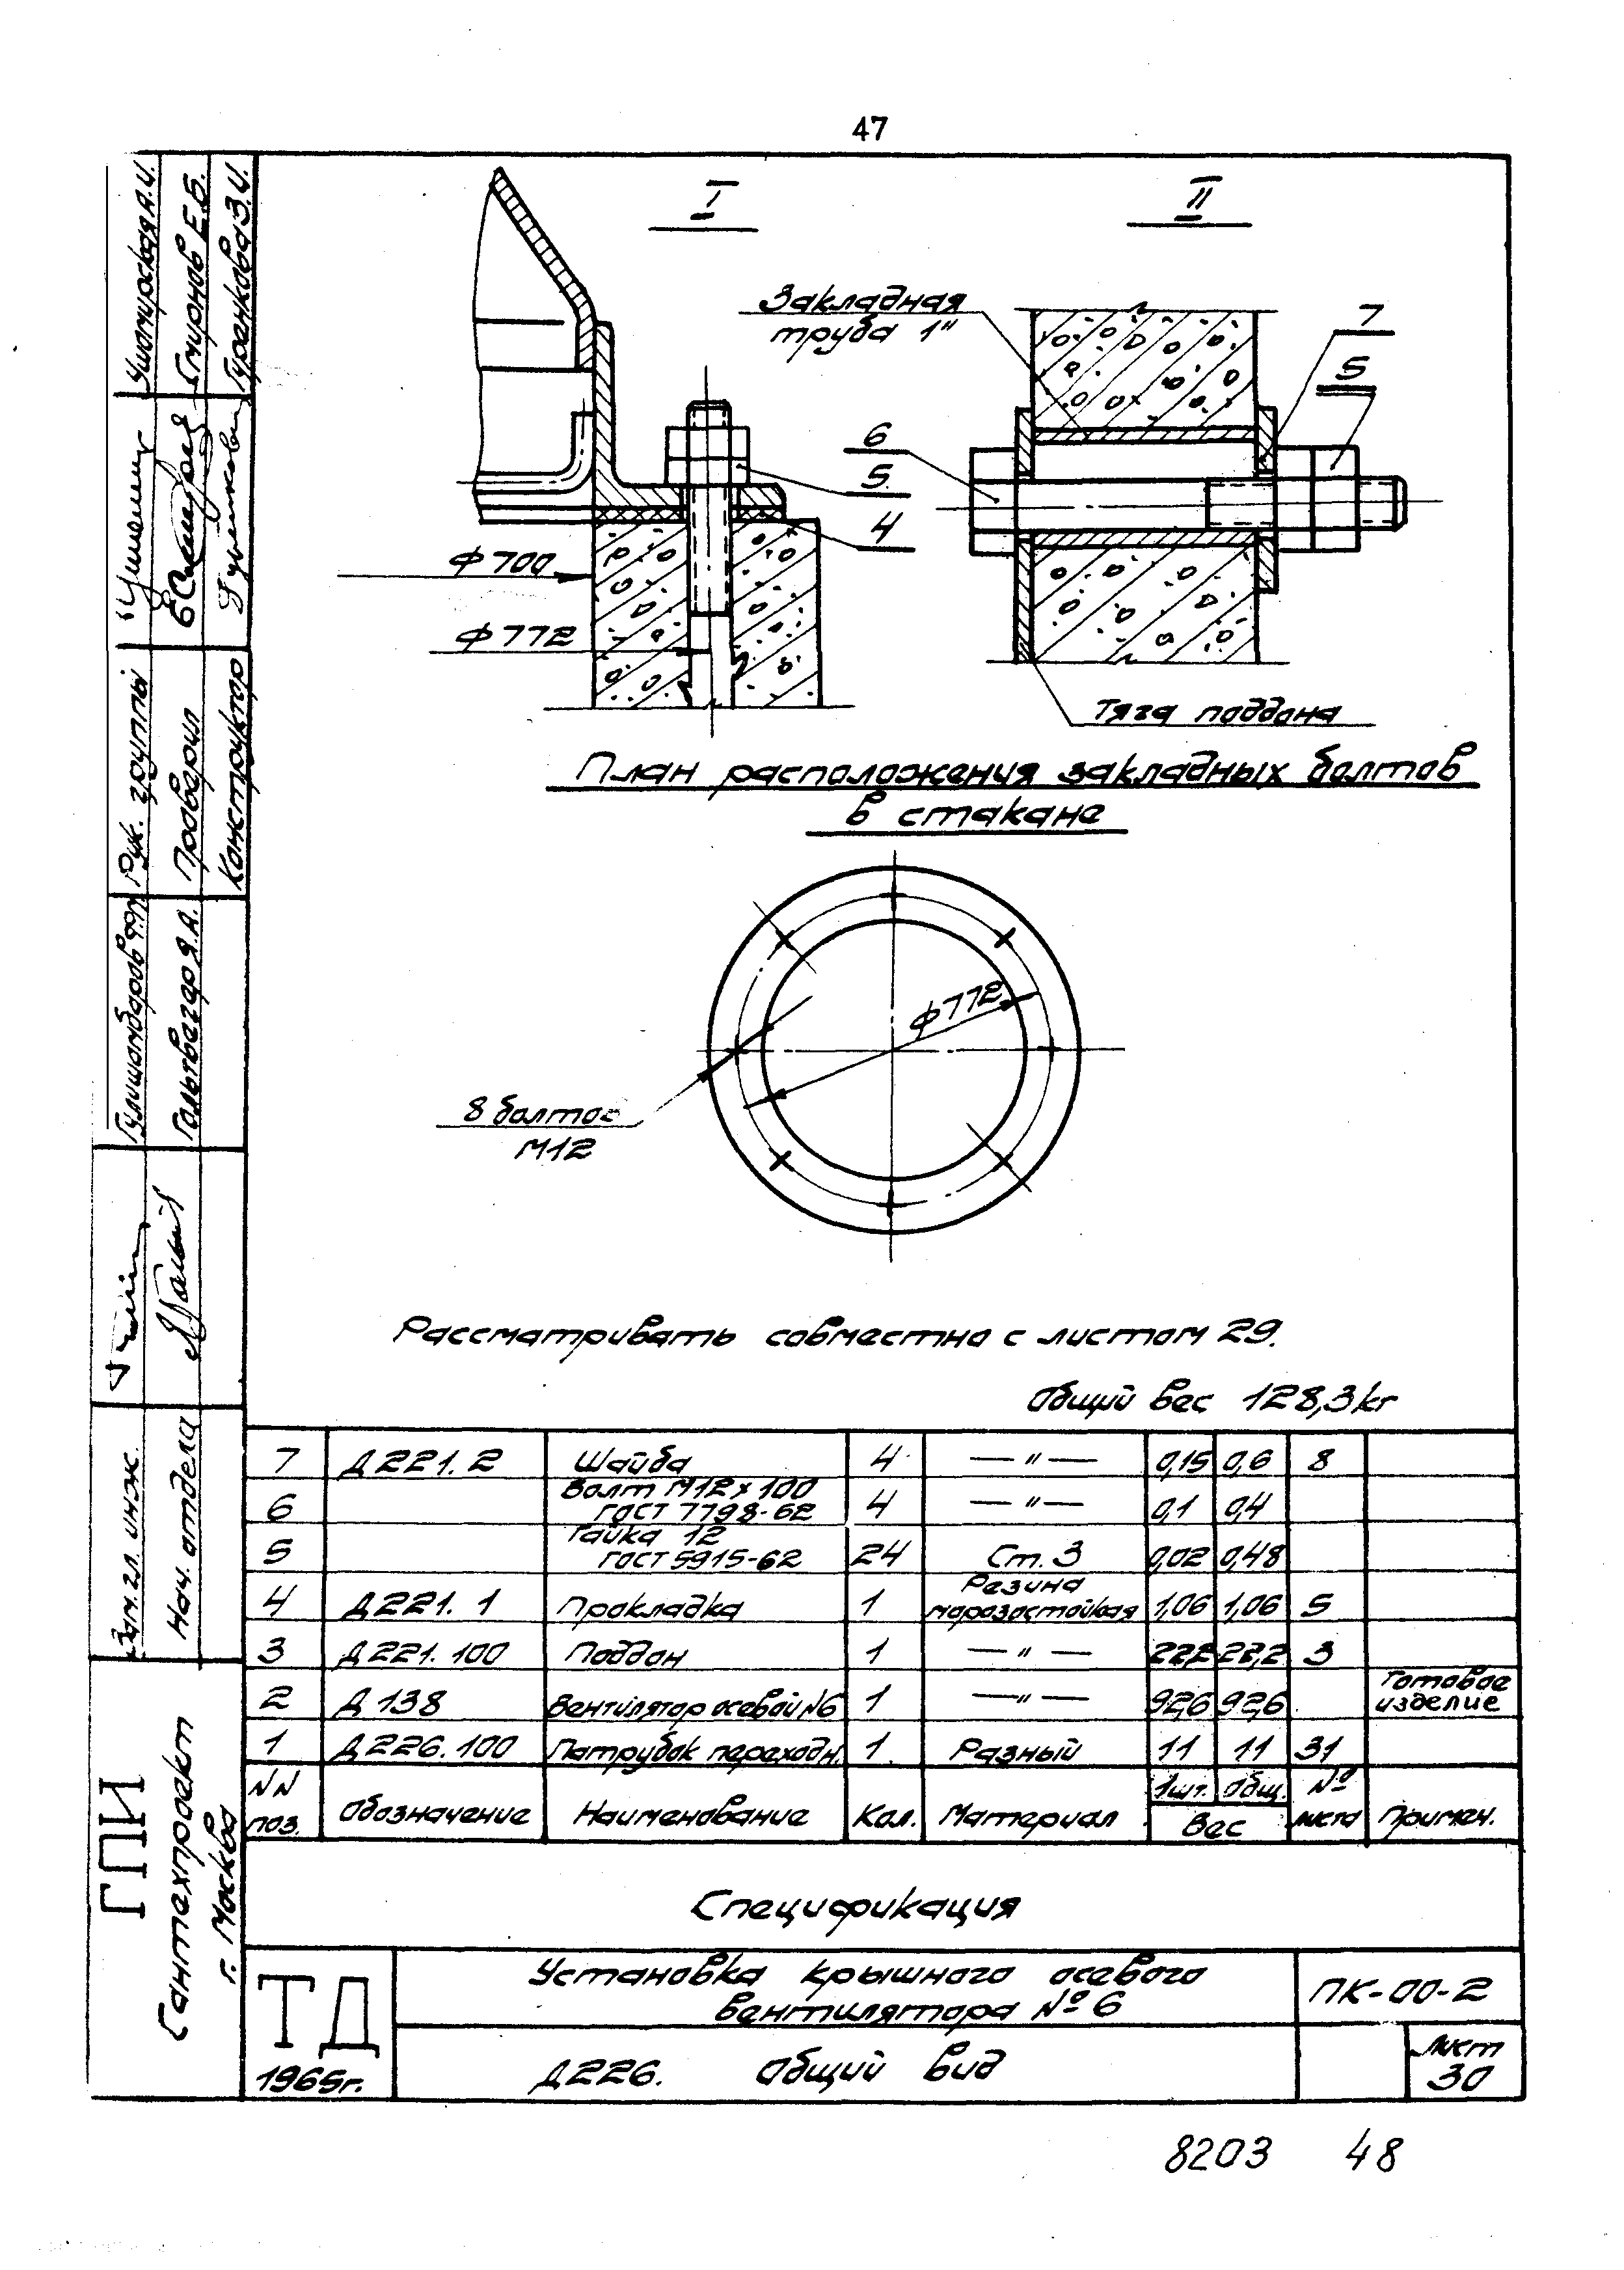 47
I
II
Закладная
труба 1"
7
5
6
5
4
ф 700
ф 772
Тяга поддона
План расположения закладных болтов
в стакане
ф 772
8 болтов
М12
Рассматривать совместно с листом 29.
Общий вес 128,3 kг
7 Д 221. 2 Шайба 4 — " — 0,15 0,6 8
6 Болт М12 х 100 ГОСТ 7798-62 4 — " — 0,1 0,4
5 Гайка 12 ГОСТ 5915-62 24 Ст. 3 0,02 0,48
4 Д 221. 1 Прокладка 1 Резина морозостойкая 1,06 1,06 5
3 Д 221. 100 Поддон 1 — " — 22,2 22,2 3
2 Д 138 Вентилятор осевой №6 1 — " — 92,6 92,6 Готовое изделие
1 Д 226. 100 Патрубок переходн. 1 Разный 11 11 31
NN поз. Обозначение Наименование Кол. Материал 1шт. Общ. Вес № листа Примеч.
Спецификация
ТД
1965г.
Установка крышного осевого
вентилятора № 6
ПК-00-2
Д 226. Общий вид
Лист
30
ГПИ
Сантехпроект
г. Москва
Зам. гл. инж.
Нач. отдела
Гальвегдо Я.А.
Рук. группы
Проверил
Смирнов Е.Б.
Конструктор
Гуренкова З.И.
8203 48